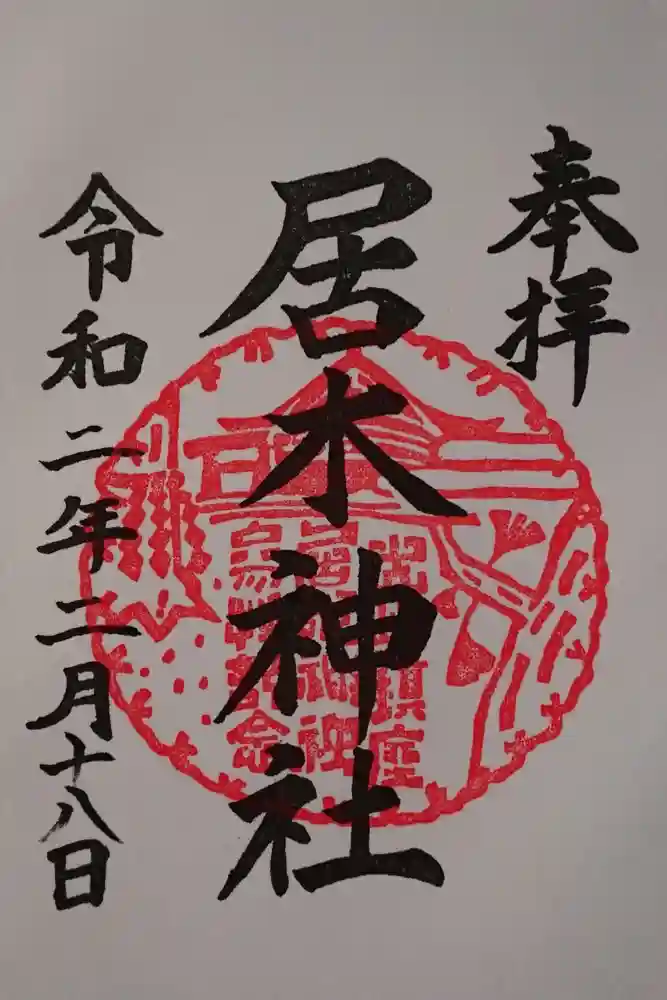 奉拝
居木神社
令和二年二月十八日